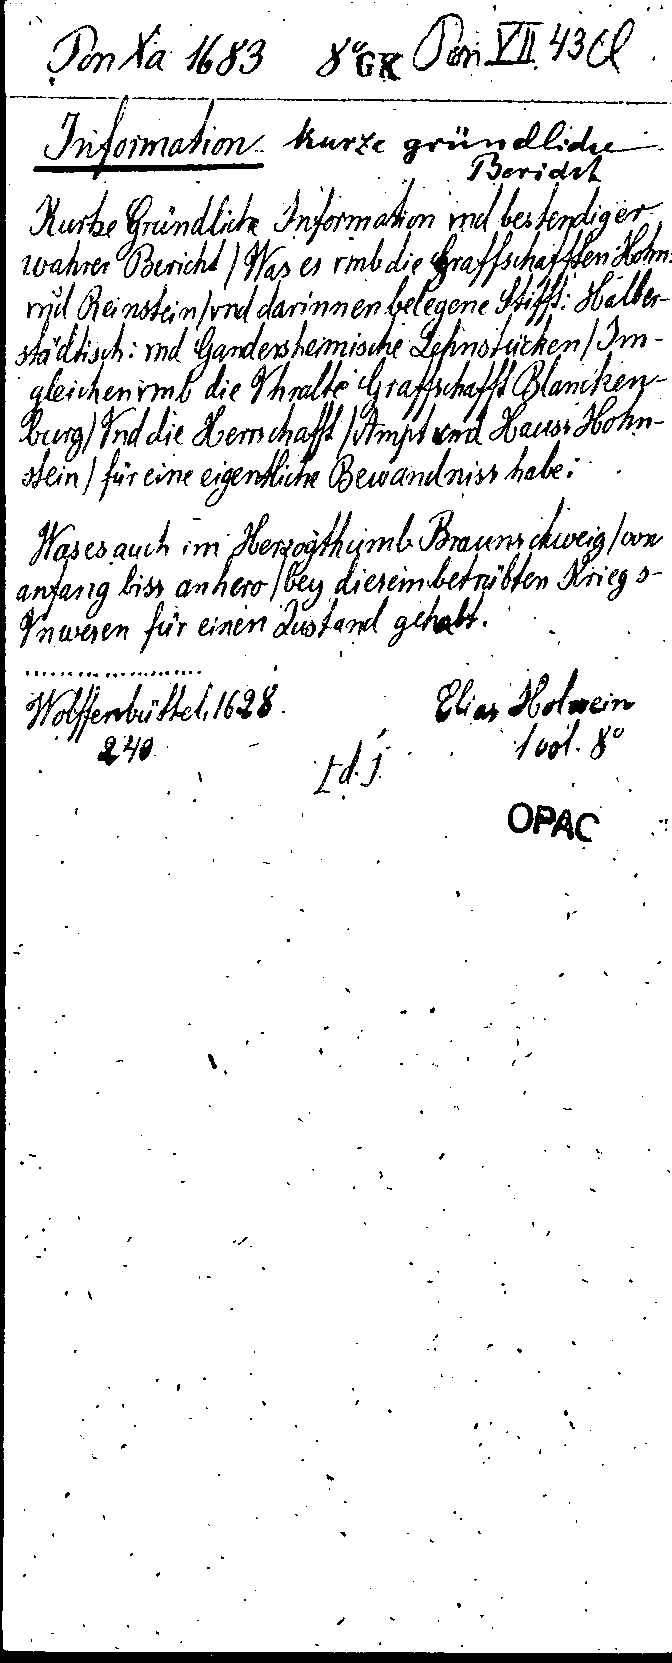 Pon Xa 1683 8° GK Pon VII 43 Cl
Information kurze gründliche
Bericht
Kurtze Gründliche Information vnd bestendiger
wahrer Bericht / Was es vmb die Graffschafften Hohn:
vnd Reinstein / vnd darinnen belegene Stifft: Halber-
städtisch: vnd Gandersheimische Lehnstücken / Im-
gleichen vmb die Vhralte Graffschafft Blancken-
burg / Vnd die Herrschafft / Ampt vnd Hauss Hohn-
stein / für eine eigentliche Bewandniss habe:
Was es auch im Herzogthumb Braunschweig / von
anfang biss anhero / bey diesem betrübten Kriegs-
Vnwesen für einen Zustand gehabt.
Wolffenbüttel, 1628 Elias Holwein
240 1 vol. 8°
[d.]
OPAC